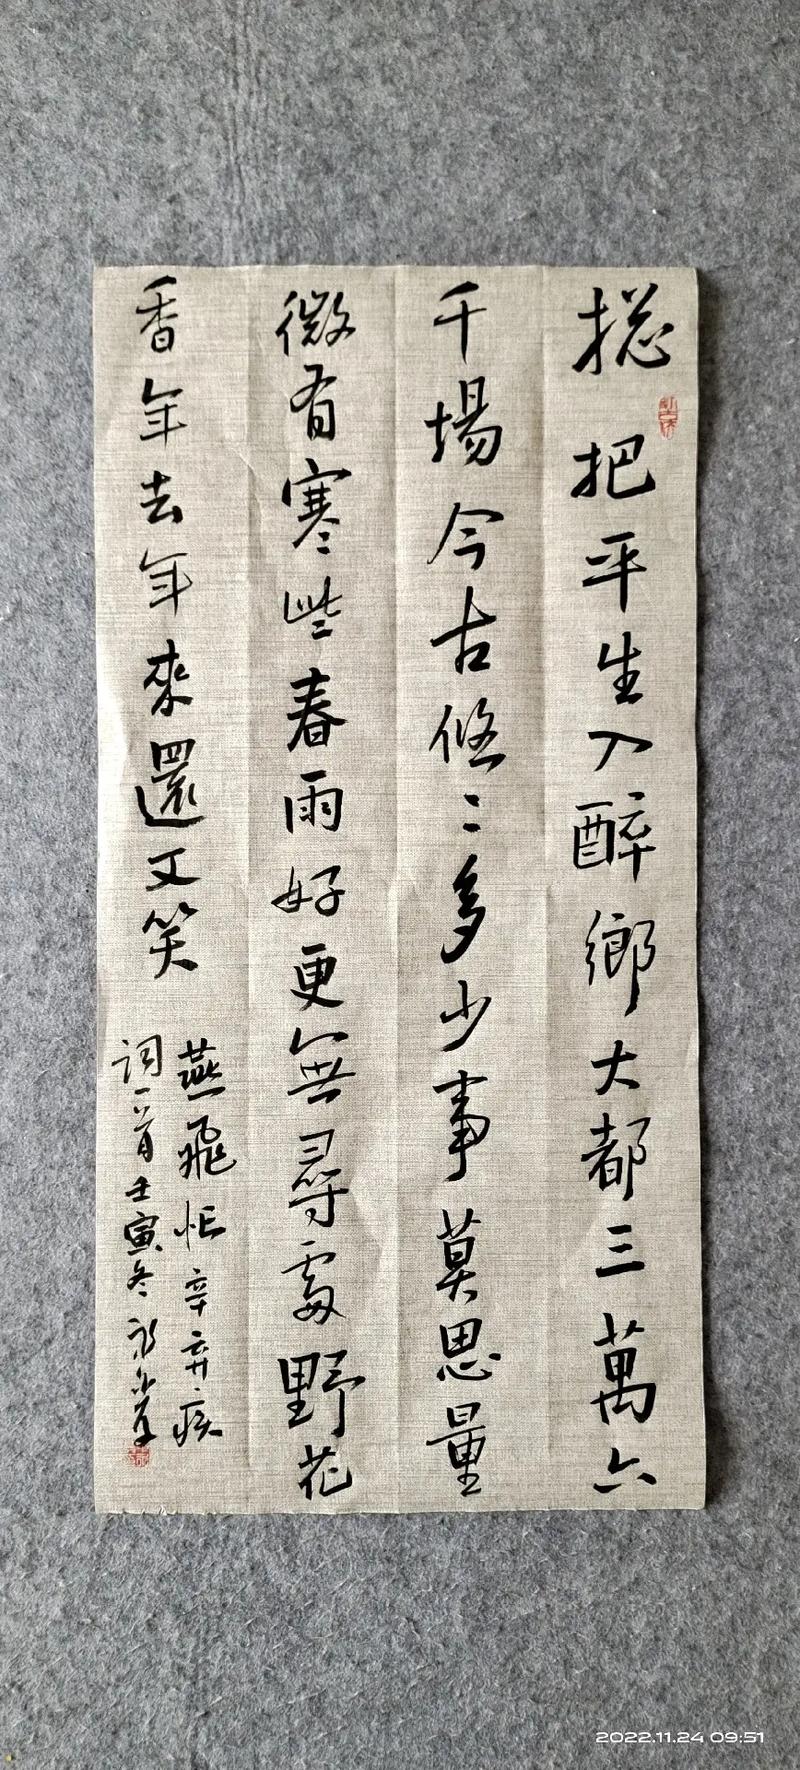 捴把平生入醉鄉大都三萬六
千場今古悠〻多少事莫思量
微有寒些春雨好更無尋處野花
香年去年來還又笑
燕飛忙辛弃疾
詞一首壬寅冬
2022.11.24 09:51